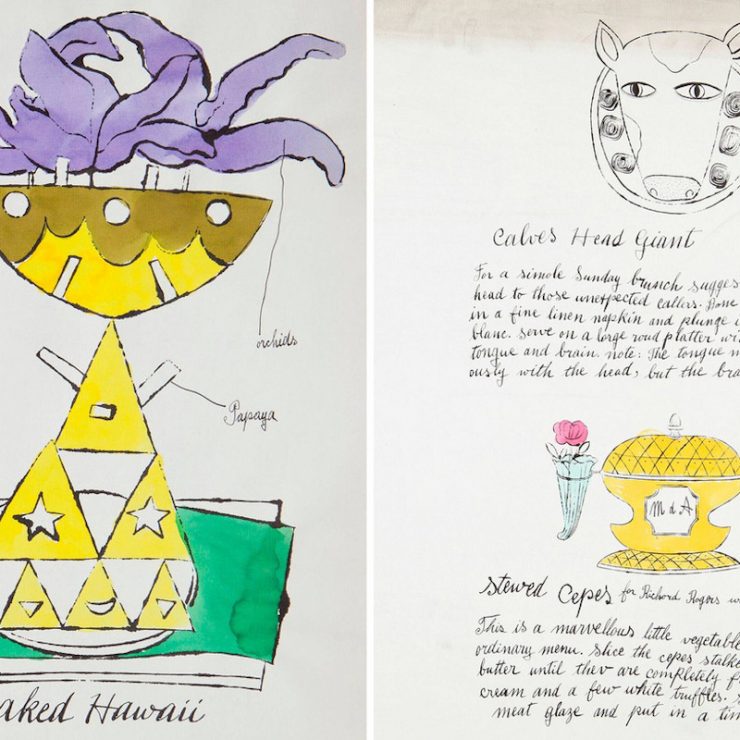 orchids
Papaya
aked Hawaii
Calves Head Giant
For a simole Sunday brunch sugges
head to those unexpected callers. Bone
in a fine linen napkin and plunge i
blanc. Serve on a large roud platter wi
tongue and brain. note: The tongue m
ously with the head, but the bra
M d A
Stewed Cepes for Richard Rogers w
This is a marvellous little vegetable
ordinary menu. Slice the cepes stalk
butter until thev are completely
cream and a few white truffles.
meat glaze and put in a tim